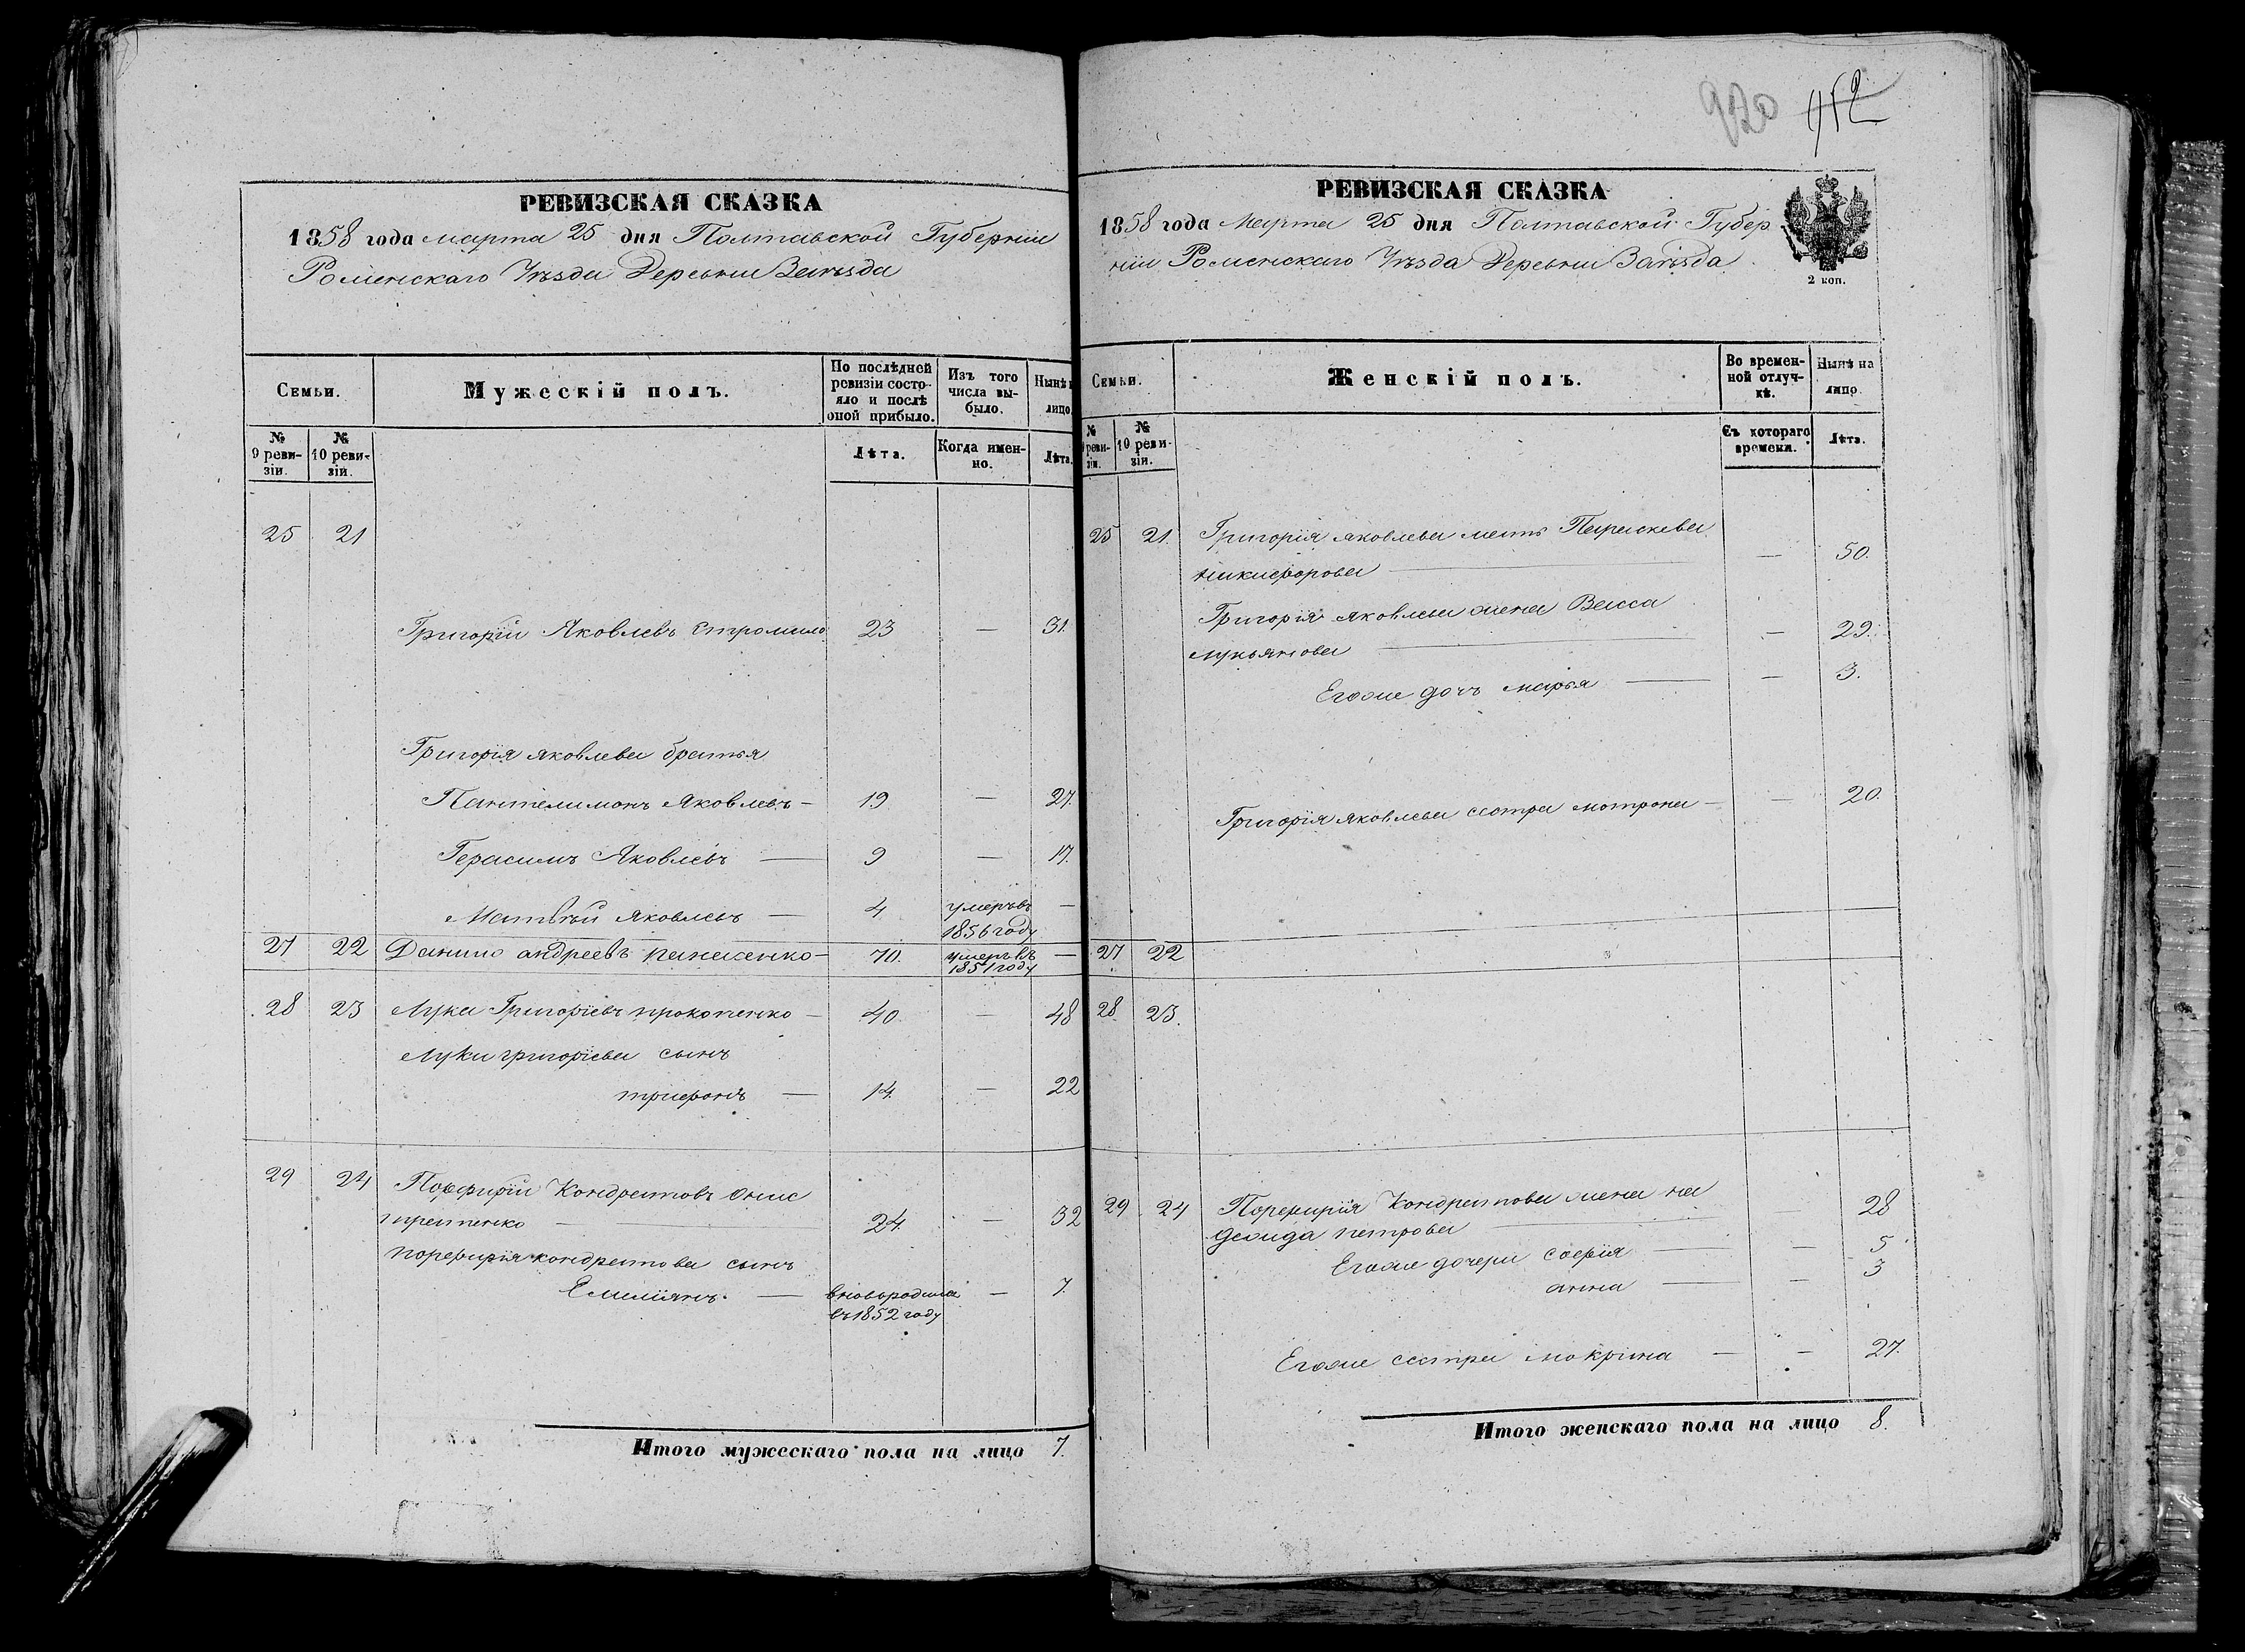 РЕВИЗСКАЯ СКАЗКА
1858 года марта 25 дня Полтавской Губернии
Роменскаго Уѣзда Деревни Заѣзда
Семьи.
Мужескій полъ.
По послѣдней ревизіи состояло и послѣ оной прибыло.
Изъ того числа выбыло.
Нынѣ
лицо
№ 9 ревизіи.
№ 10 ревизіи.
Лѣта.
Когда именно.
Лѣта.
25 21
Григорій Яковлевъ Стромило 23 — 31.
Григорія Яковлева братья
Пантелимонъ Яковлевъ — 19 — 27.
Герасимъ Яковлевъ — 9 — 17.
Матвѣй Яковлевъ — 4 умеръ въ —
1856 году
27 22 Данило андреевъ — 70. умеръ въ —
1851 году
28 23 Лука Григорiевъ прокопенко — 40. — 48
Луки григорiева сынъ
трифонъ — 14. — 22
29 24 Порфирій Кондратовъ Онис
тратенко — 24. — 32
порфирія кондратова сынъ
Емиліянъ. — вновьродился — 7.
въ 1852 году
Итого мужескаго пола на лицо 7.
920 952
РЕВИЗСКАЯ СКАЗКА
1858 года Марта 25 дня Полтавской Губер
ніи Роменскаго Уѣзда Деревни Заѣзда
2 коп.
Семьи.
Женскій полъ.
Во временной отлучкѣ.
Нынѣ на лицо.
№ 9 ревизіи.
№ 10 ревизіи.
Съ котораго времени.
Лѣта.
25 21. Григорія яковлева мать Параскева
никифорова — — 50.
Григорія яковлева жена Васса
лукьянова — — 29.
Егоже дочь марья — — 3.
Григорія яковлева сестра мотрона — — 20.
27 22
28 23.
29 24 Порфирія Кондратова жена на
деонда петрова — — 28
Егоже дочери софія — — 5
анна — — 3
Егоже сестра мокрина — — 27.
Итого женскаго пола на лицо 8.